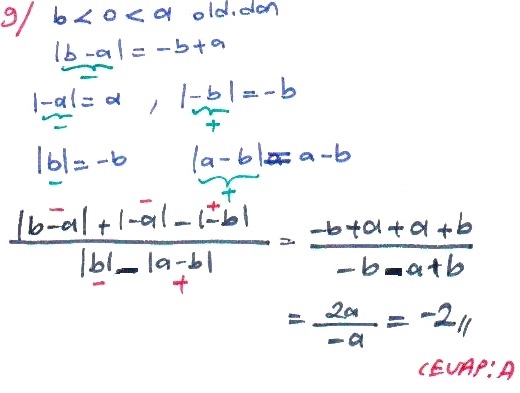 9/ b < 0 < a old.dan
|b-a| = -b+a
|-a| = a , |-b| = -b
|b| = -b |a-b| = a-b
(|b-a| + |-a| - |-b|) / (|b| - |a-b|) = (-b+a+a+b) / (-b-a+b)
= 2a / -a = -2//
CEVAP: A